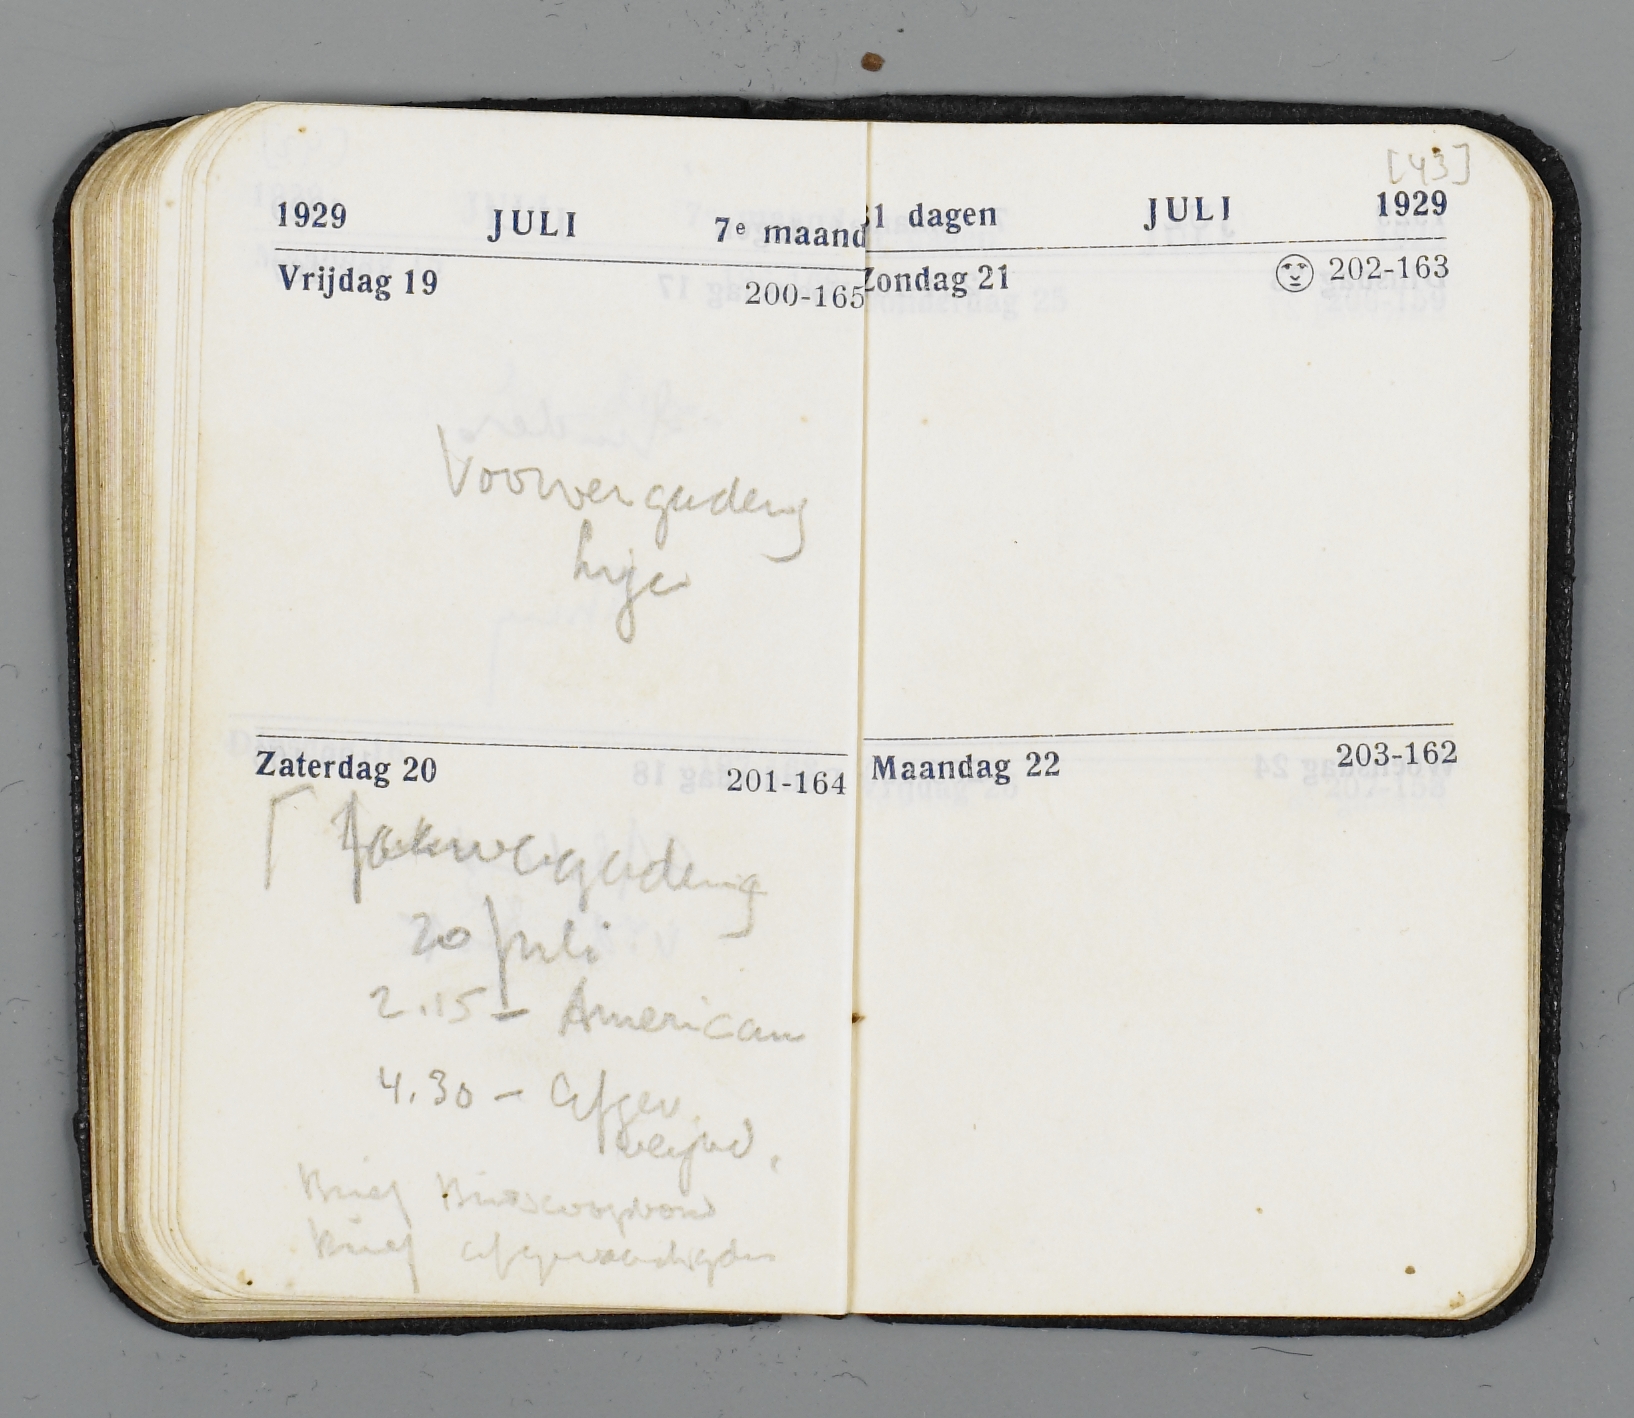 1929 JULI 7e maand
Vrijdag 19 200-165
Voorvergadering
Zaterdag 20 201-164
20 Juli
2.15 - American
4.30 - Afgev.
Brief Bioscoopbond
Brief afgevaardigden
[43]
31 dagen JULI 1929
Zondag 21 202-163
Maandag 22 203-162